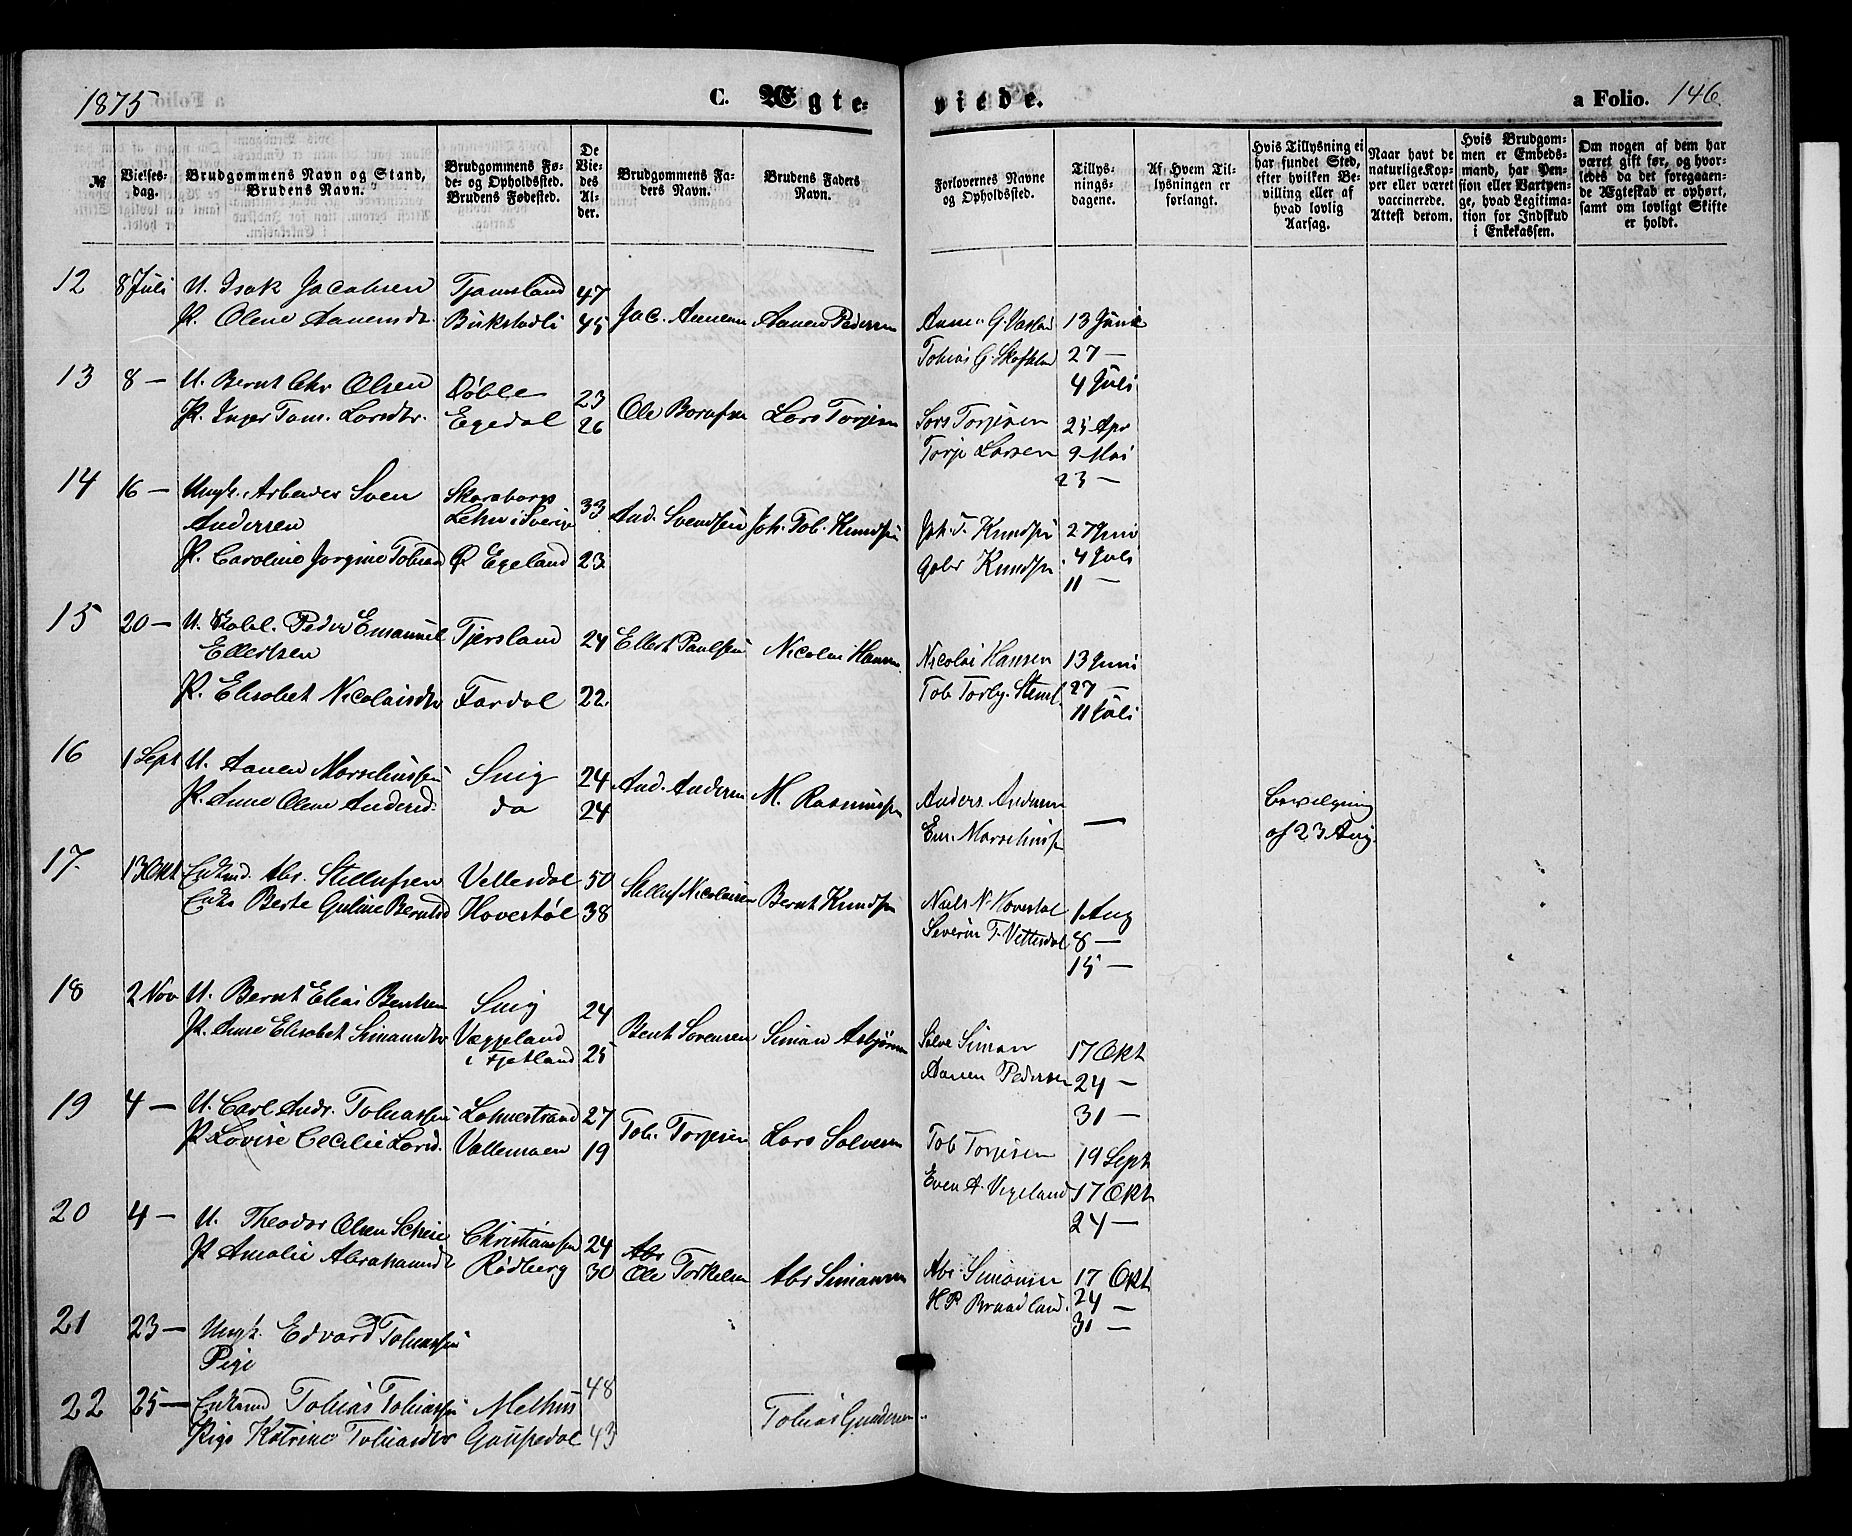 1875
C. Ægte-
viede.
a Folio. 146
№
Vielses-
dag.
Brudgommens Navn og Stand,
Brudens Navn.
Brudgommens Fø-
de- og Opholdssted.
Brudens Fødested.
De
Vie-
des
Al-
der.
Brudgommens Fa-
ders Navn.
Brudens Faders
Navn.
Forlovernes Navne
og Opholdssted.
Tillys-
nings-
dagene.
Af Hvem Til-
lysningen er
forlangt.
Hvis Tillysning ei
har fundet Sted,
efter hvilken Be-
villing eller af
hvad lovlig
Aarsag.
Naar havt de
naturlige Kop-
per eller været
vaccinerede.
Attest derom.
Hvis Brudgom-
men er Embeds-
mand, har Pen-
sion eller Vartpen-
ge, hvad Legitima-
tion for Indskud
i Enkekassen.
Om nogen af dem har
været gift før, og hvor-
ledes da det foregaaen-
de Ægteskab er ophørt,
samt om lovligt Skifte
er holdt.
12 8 Juli U. Isak Jacobsen Tjomsland 47
P. Olene Aanensdr. Birkstadli 45 Jac. Aanensen Aanen Pedersen 13 Juni
Tobias G. 27 —
4 Juli
13 8 — U. Bernt Chr Olsen Døble 23
P. Inger Tom. Larsdtr. Egedal 26 Ole Lars Torjesen Lars Torjesen 25 Apr
Torje Larsen 9 Mai
23 —
14 16 — Ungk. Arbeider Sven Skaraborgs
Andersen Lehn i Sverige 33 And. Svendsen Joh. Tob. Knudsen Joh. T. Knudsen 27 Juni
P. Caroline Jorgine Tobiasd Ø Egeland 23 Gabr Knudsen 4 Juli
11 —
15 20 — U. Peder Emanuel Tjersland 24 Ellert Paulsen Nicolai Hansen
Ellertsen Nicolai Hansen 13 Juni
P. Elisabet Nicolaisdtr Fardal 22 Tob Torbj. 27 —
11 Juli
16 1 Sept U. Aanen Marselinssen Snig 24 And. Andersen M. Rasmussen Anders Andersen Bevilgning
P. Anne Olene Andersd. do 24 Em. Marselins — af 23 Aug.
17. 13 Okt Enkmd. Abr. Stillufsen Vellesdal 50 Stilluf Nicolaisen Bernt Knudsen
Enke Berte Guline Berntsd Hovestøl 38 Niels N. Hovestøl 1 Aug
Severin T. Vellesdal 8 —
15 —
18 2 Nov U. Bernt Elias Bentsen Snig 24
P. Anne Elisabet Simonsdtr Væppeland Bent Sorensen Simon Asbjørnsen Salve Simon 17 Okt
i Fjotland 25 Aanen Pedersen 24 —
31 —
19 4 — U. Carl Andr. Tobiassen Lohnestrand 27
P. Lovise Cecilie Larsd. Vallemoen 19 Tob. Torjesen Lars Salvesen Tob Torjesen 19 Sept
Even A. Vigeland 17 Okt
24 —
20 4 — U. Theodor Olsen Scheie Christianssan 24 Abr
P. Amalie Abrahamsd Rødberg 30 Ole Torkelsen Abr Simonsen Abr. Simonsen 17 Okt
H P Braadland. 24 —
31 —
21 23 — Ungk. Edvard Tobiassen
Pige
22 25 — Enkmd Tobias Tobiassen Melhus 48
Pige Katrine Tobiasdtr Goupedal 43 Tobias Gundersen